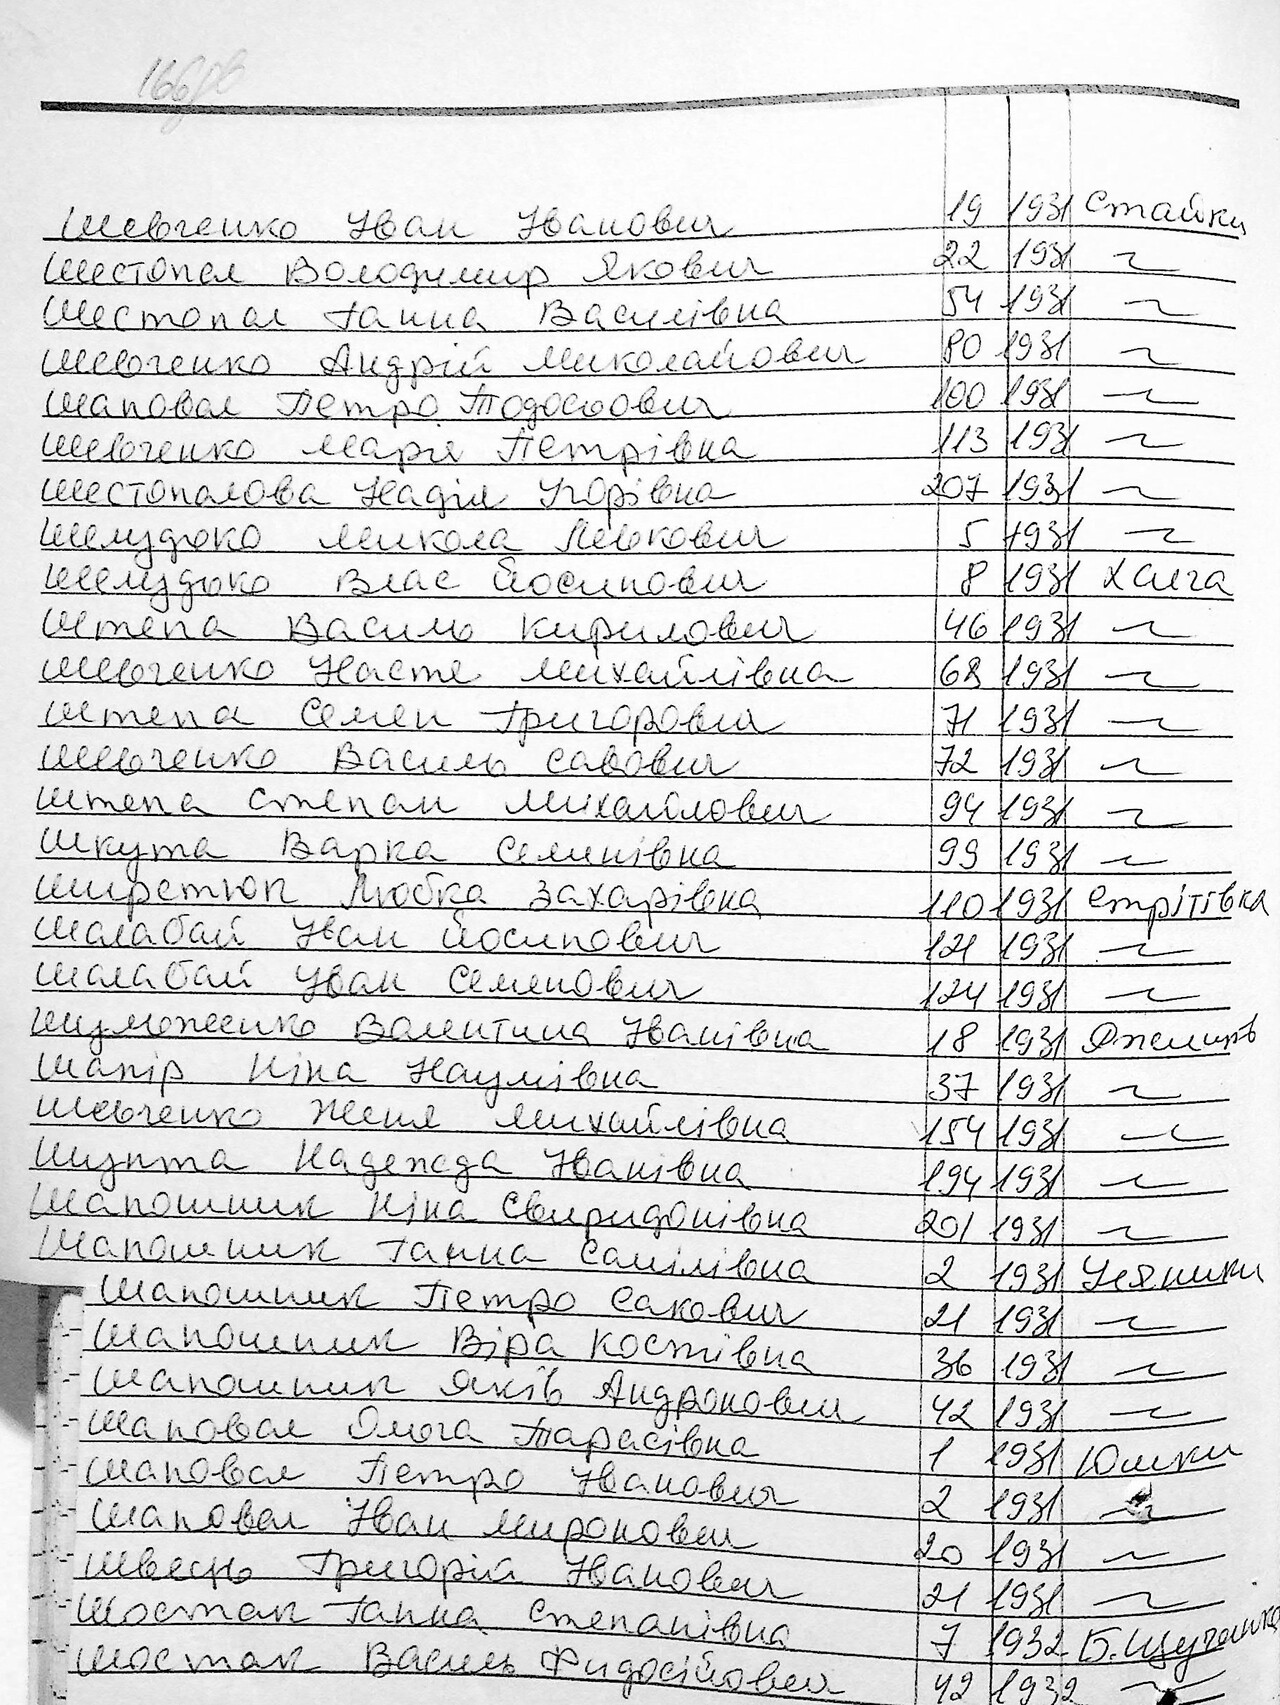 166
Шевченко Іван Іванович 19 1931 Стайки
Шестопал Володимир Якович 22 1931 ~
Шестопал Ганна Василівна 54 1931 ~
Шевченко Андрій Миколайович 80 1931 ~
Шаповал Петро Тодосьович 100 1931 ~
Шевченко Марія Петрівна 113 1931 ~
Шестопалова Надія Ігорівна 207 1931 ~
Шелудько Микола Левкович 5 1931 ~
Шелудько Влас Йосипович 8 1931 Халча
Штепа Василь Кирилович 46 1931 ~
Шевченко Настя Михайлівна 68 1931 ~
Штепа Семен Григорович 71 1931 ~
Шевченко Василь Савович 72 1931 ~
Штепа Степан Михайлович 94 1931 ~
Шкута Варка Семенівна 99 1931 ~
Любка Захарівна 110 1931 Стрітівка
Шалабай Іван Йосипович 121 1931 ~
Шалабай Іван Семенович 124 1931 ~
Валентина Іванівна 18 1931
Шапір Ніна Наумівна 37 1931 ~
Шевченко Женя Михайлівна 154 1931 ~
Надежда Іванівна 194 1931 ~
Шапошник Ніна Свиридонівна 201 1931 ~
Шапошник Ганна Самілівна 2 1931
Шапошник Петро Сакович 21 1931 ~
Шапошник Віра Костівна 36 1931 ~
Шапошник Яків Андронович 42 1931 ~
Шаповал Ольга Тарасівна 1 1931 Юшки
Шаповал Петро Іванович 2 1931 ~
Шаповал Іван Миронович 20 1931 ~
Швець Григорій Іванович 21 1931 ~
Шостак Ганна Степанівна 7 1932 Б. Щучинка
Шостак Василь Фидосійович 42 1932 ~